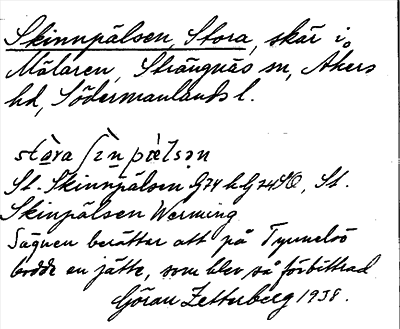 Skinnpälsen, Stora, skär i
Mälaren, Strängnäs sn, Åkers
hd, Södermanlands l.
stɷ̀ra ʃìnpæ̀lsən
St. Skinnpälsen G74 h G24SO, St.
Skinpälsen Werming
Sägnen berättar att på Tynnelsö
bodde en jätte, som blev så förbittrad
Göran Zetterberg 1938.